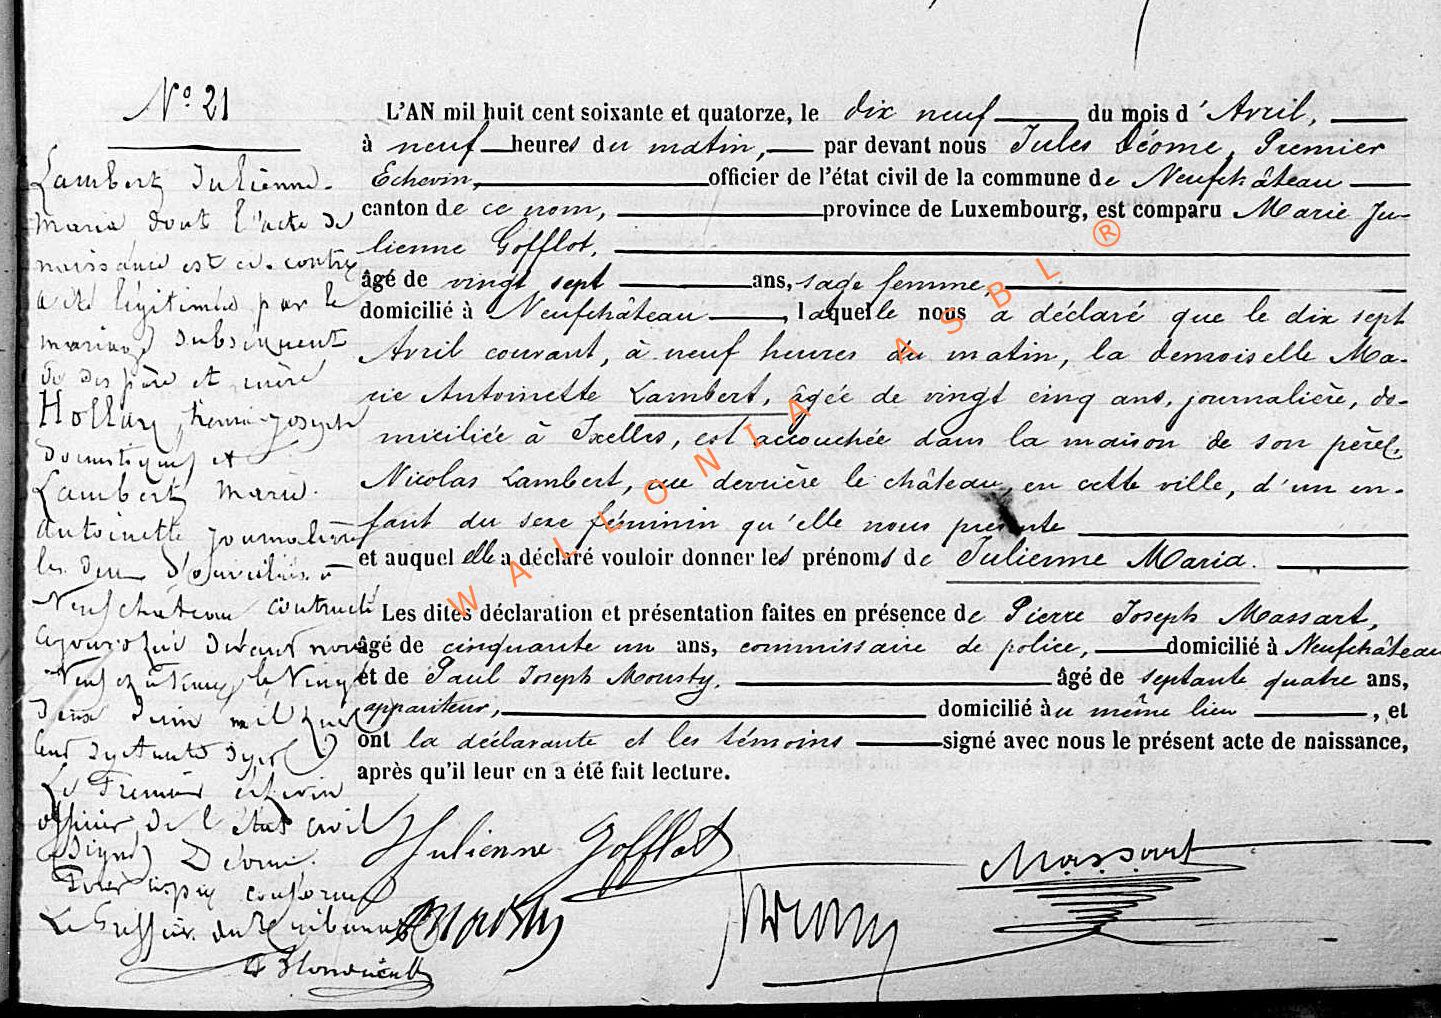 N° 21
Lambert Julienne-
Maria, dont l'acte de
naissance est ci-contre
a été légitimée par le
mariage subséquent
de ses père et mère
Hollay, henri-joseph
domestique et
Lambert Marie-
antoinette journalière
les deux domiciliés à
Neufchateau contracté
aujourd'hui devant nous
Neufchâteau, le Vingt
deux Juin mil huit
cent septante sept
Le Premier échevin
officier de l'état civil
(signé) Déome.
Pour copie conforme
Le Greffier du Tribunal
L'AN mil huit cent soixante et quatorze, le dix neuf du mois d'Avril,
à neuf heures du matin, par devant nous Jules Déome, Premier
Echevin, officier de l'état civil de la commune de Neufchâteau
canton de ce nom, province de Luxembourg, est comparu Marie Ju-
lienne Gofflot,
âgé de vingt sept ans, sage femme,
domicilié à Neufchâteau, laquelle nous a déclaré que le dix sept
Avril courant, à neuf heures du matin, la demoiselle Ma-
rie Antoinette Lambert, âgée de vingt cinq ans, journalière, do-
miciliée à Ixelles, est accouchée dans la maison de son père
Nicolas Lambert, rue derrière le château, en cette ville, d'un en-
fant du sexe féminin qu'elle nous présente
et auquel elle a déclaré vouloir donner les prénoms de Julienne Maria.
Les dites déclaration et présentation faites en présence de Pierre Joseph Massart,
âgé de cinquante un ans, commissaire de police, domicilié à Neufchâteau
et de Paul Joseph Mousty, âgé de septante quatre ans,
appariteur, domicilié au même lieu, et
ont la déclarante et les témoins signé avec nous le présent acte de naissance,
après qu'il leur en a été fait lecture.
Julienne Gofflot
Massart
Mousty
Déome
WALLONIA ASBL ®